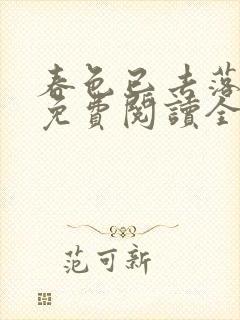 春色已去落
免費閱讀全
范可新